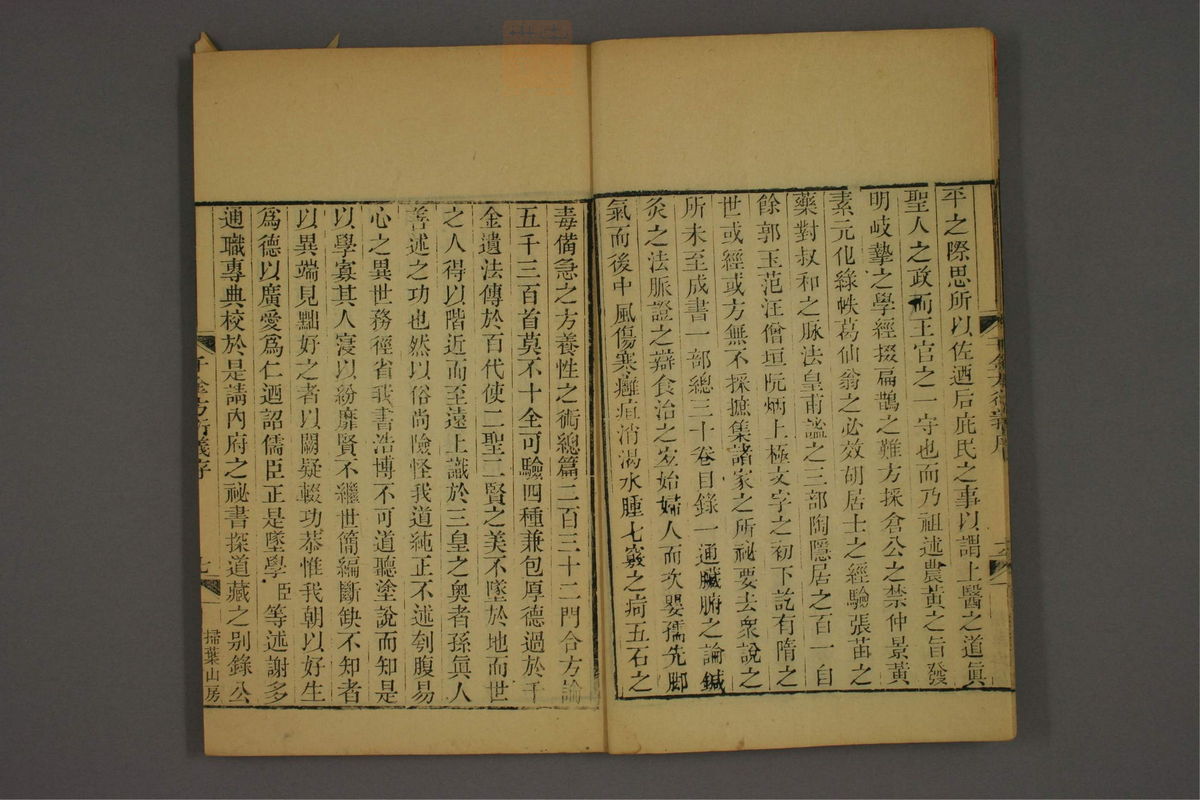 平之際思所以佐迺后庇民之事以謂上醫之道眞
聖人之政而王官之一守也而乃祖述農黃之旨發
明岐摯之學經掇扁鵲之難方採倉公之禁仲景黃
素元化綠帙葛仙翁之必效胡居士之經驗張苗之
藥對叔和之脉法皇甫謐之三部陶隱居之百一自
餘郭玉范汪僧垣阮炳上極文字之初下訖有隋之
世或經或方無不採摭集諸家之所祕要去衆說之
所未至成書一部總三十卷目錄一通臟腑之論鍼
灸之法脈證之辯食治之宜始婦人而次嬰孺先脚
氣而後中風傷寒癰疽消渴水腫七竅之痾五石之
毒備急之方養性之術總篇二百三十二門合方論
五千三百首莫不十全可驗四種兼包厚德過於千
金遺法傳於百代使二聖二賢之美不墜於地而世
之人得以階近而至遠上識於三皇之奧者孫眞人
善述之功也然以俗尚險怪我道純正不述刳腹易
心之異世務徑省我書浩博不可道聽塗說而知是
以學寡其人寖以紛靡賢不繼世簡編斷缺不知者
以異端見黜好之者以闕疑輟功恭惟我朝以好生
爲德以廣愛爲仁迺詔儒臣正是墜學臣等述謝多
通職專典校於是請內府之祕書探道藏之別錄公
千金方衍義序
七
掃葉山房